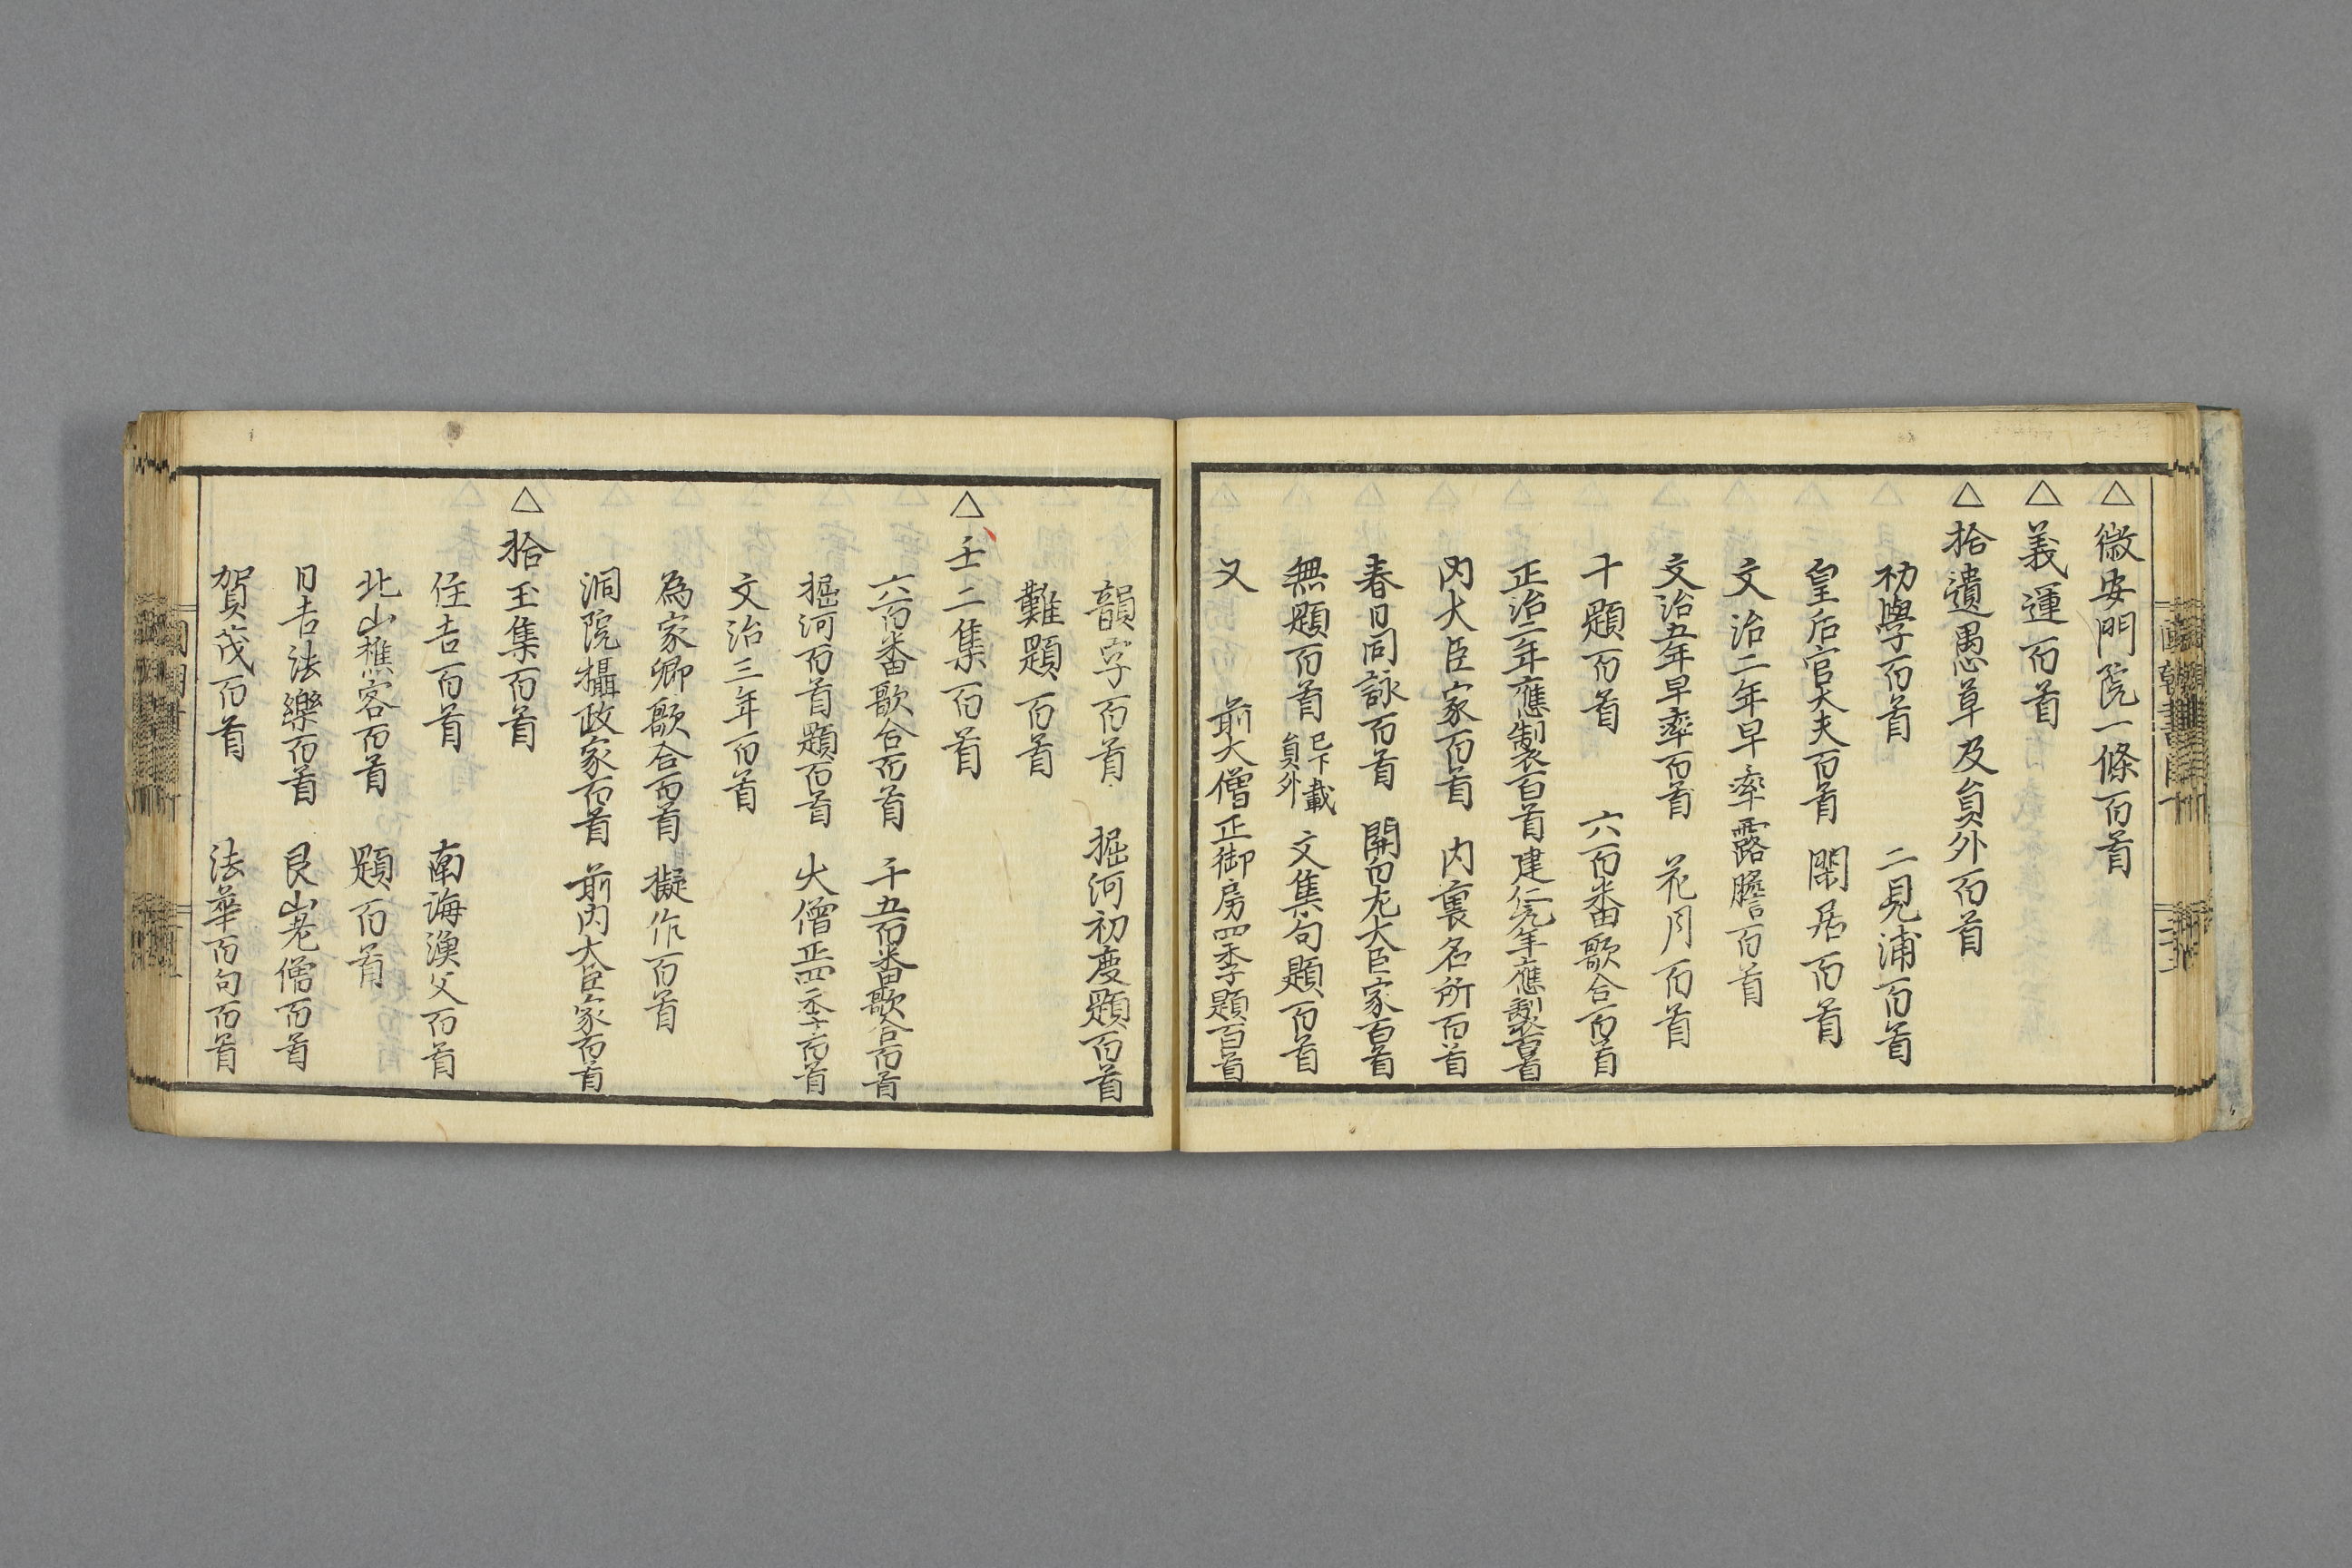 △徽安門院一條百首
△義運百首
△拾遺愚草及員外百首
初學百首　二見浦百首
皇后宮大夫百首　閑居百首
文治二年早率露膽百首
文治五年早率百首　花月百首
十題百首　六百番歌合百首
正治二年應製百首　建仁元年應製百首
内大臣家百首　内裏名所百首
春日同詠百首　関白左大臣家百首
無題百首　已下載員外　文集句題百首
又　前大僧正御房四季題百首
韻字百首　堀河初度題百首
難題百首
△壬二集百首
六百番歌合百首　千五百番歌合百首
堀河百首題百首　大僧正四季百首
文治三年百首
為家卿歌合百首　擬作百首
洞院攝政家百首　前内大臣家百首
△拾玉集百首
住吉百首　南海漁父百首
北山樵客百首　題百首
日吉法樂百首　艮山老僧百首
賀茂百首　法華百句百首